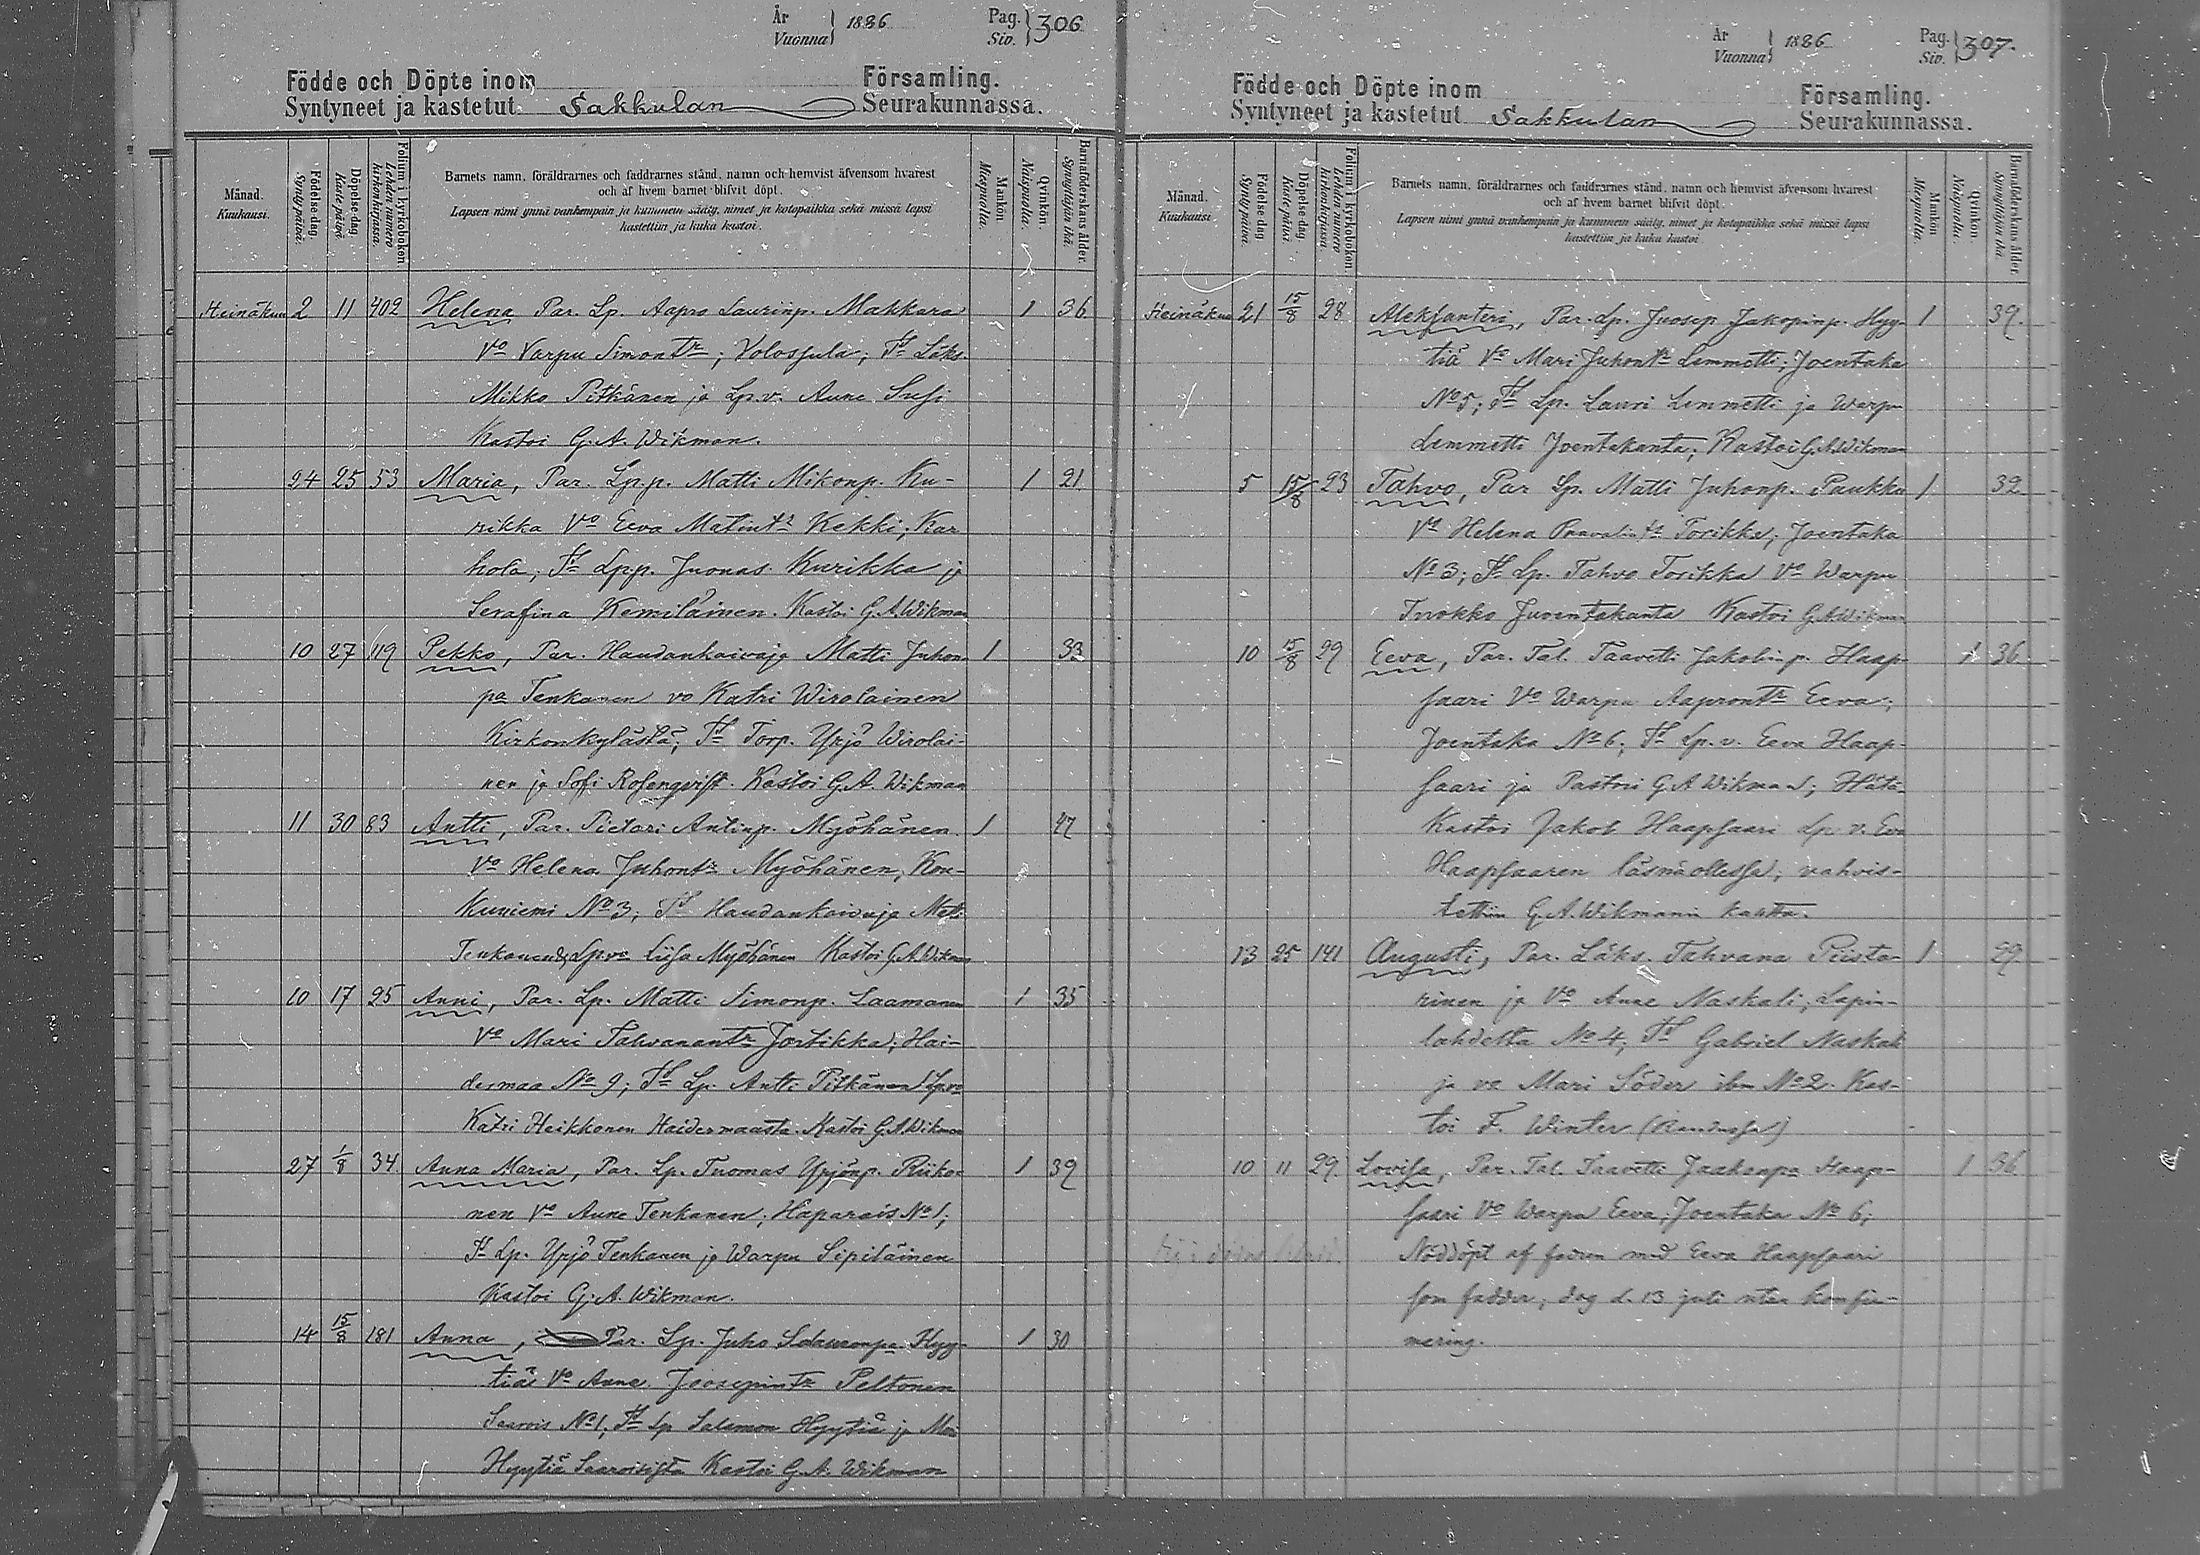 År
Vuonna 1886
Pag.
Siv. 306
Födde och Döpte inom Församling.
Syntyneet ja kastetut Sakkulan Seurakunnassa.
Månad.
Kuukausi.
Födelse-dag.
Synty päivä.
Döpelse-dag.
Kaste päivä.
Folium i kyrkoboken
Lehden numero kirkonkirjassa.
Barnets namn, föräldrarnes och faddrarnes stånd, namn och hemvist äfvensom hvarest
och af hvem barnet blifvit döpt.
Lapsen nimi ynnä vanhempain ja kummein sääty, nimet ja kotopaikka sekä missä lapsi
kastettiin ja kuka kastoi.
Mankön
Miespuolia.
Qvinkön.
Naispuolia.
Barnaföderskans ålder.
Synnyttäjän ikä.
Heinäkuu 2 11 402 Helena Par. Lp. Aapro Laurinp. Makkara 1 36
Vo Varpu Simontr; Volossula; Td Läks.
Mikko Pitkänen ja Lp.v. Aune Susi
Kastoi G. A. Wikman.
24 25 53 Maria, Par. Lp.p. Matti Mikonp. Ku- 1 21
rikka Vo Eeva Matintr Kekki; Kar
hola; Td Lp.p. Juonas Kurikka ja
Serafina Kemiläinen. Kastoi G. A. Wikman
10 27 119 Pekko, Par. Haudankaivaja Matti Juhon 1 33
pa Tenkanen vo Katri Wirolainen
Kirkonkylästä; Td Torp. Yrjö Wirolai-
nen ja Sofi Rosenqvist. Kastoi G. A. Wikman
11 30 83 Antti, Par. Pietari Antinp. Myöhänen 1 47
Vo Helena Juhontr Myöhänen, Kou-
kuniemi No 3; Td Haudankaivaja Matti
Tenkanen & Lp.vo Liisa Myöhänen Kastoi G. A. Wikman
10 17 95 Anni, Par. Lp. Matti Simonp. Laamanen 1 35
Vo Mari Tahvanantr Jortikka; Hai-
dermaa No 9; Td Lp. Antti Pitkänen Lp.vo
Katri Heikkonen Haidermaasta. Kastoi G. A. Wikman
27 1/8 34 Anna Maria, Par. Lp. Tuomas Yrjönp. Riiko- 1 39
nen Vo Aune Tenkanen; Haparais No 1;
Td Lp. Yrjö Tenkanen ja Warpu Sipiläinen
Kastoi G. A. Wikman.
14 15/8 181 Anna, Par. Lp. Juho Hyy- 1 30
tiäs Vo Anna Joosepintr Peltonen
No 1; Td Lp Salamon Hyytiä ja Mari
Hyytiä Kastoi G. A. Wikman
År
Vuonna 1886
Pag.
Siv. 307.
Födde och Döpte inom Församling.
Syntyneet ja kastetut Sakkulan Seurakunnassa.
Månad.
Kuukausi
Födelse-dag.
Synty päivä.
Döpelse-dag.
Kaste päivä.
Folium i kyrkoboken
Lehden numero kirkonkirjassa.
Barnets namn, föräldrarnes och faddrarnes stånd, namn och hemvist äfvensom hvarest
och af hvem barnet blifvit döpt.
Lapsen nimi ynnä vanhempain ja kummein sääty, nimet ja kotopaikka sekä missä lapsi
kastettiin ja kuka kastoi
Mankön
Miespuolia.
Qvinkön
Naispuolia.
Barnaföderskans ålder.
Synnyttäjän ikä.
Heinäkuu 21 15/8 28 Aleksanteri, Par. Lp. Juosep Jakopinp. Hyy- 1 39.
tiä Vo Mari Juhontr Lemmetti; Joentaka
No 5; Td Lp. Lauri Lemmetti ja Warpu
Lemmetti Joentakanta; Kastoi G. A. Wikman
5 15/8 23 Tahvo, Par Lp. Matti Juhonp. Paukku 1 32
Vo Helena Paavalintr Torikka; Joentaka
No 3; Td Lp. Tahvo Torikka Vo Warpu
Kastoi G. A. Wikman
10 15/8 29 Eeva, Par. Tal. Taavetti Jakobinp. Haap- 1 36
saari Vo Warpu Aaprontr Eeva;
Joentaka No 6; Td Lp. v. Eeva Haap-
saari ja Pastori G. A. Wikman; Hätä-
Kastoi Jakob Haapsaari Lp. v. Eva
Haapsaaren läsnäollessa; vahvis-
tettiin G. A. Wikmanin kautta.
13 25 141 Augusti, Par. Läks. Tahvana Piista- 1 29
rinen ja Vo Anne Naskali; Lapin-
lahdelta No 4; Td Gabriel Naskali
ja vo Mari Söder ibm No 2. Kas-
toi F. Winter (Raudussa)
10 11 29 Lovisa, Par. Tal. Taavetti Jaakonpa Haap- 1 36
saari Vo Warpu Eeva; Joentaka No 6;
Nöddöpt af fadren med Eeva Haapsaari
som fadder; dog d. 13 juli utan konfir-
mering.